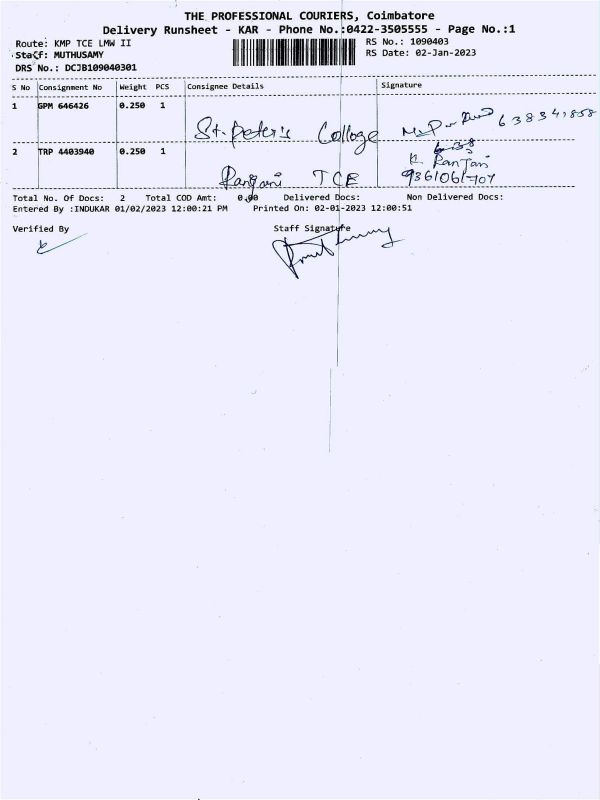 THE PROFESSIONAL COURIERS, Coimbatore
Delivery Runsheet - KAR - Phone No.:0422-3505555 - Page No.:1
Route: KMP TCE LMW II
RS No.: 1090403
Staff: MUTHUSAMY
RS Date: 02-Jan-2023
DRS No.: DCJB109040301
S No Consignment No Weight PCS Consignee Details Signature
1 GPM 646426 0.250 1
St. Peter's College
2 TRP 4403940 0.250 1
K. Ranjani
Ranjani TCE
Total No. Of Docs: 2 Total COD Amt: 0.00 Delivered Docs: Non Delivered Docs:
Entered By :INDUKAR 01/02/2023 12:00:21 PM Printed On: 02-01-2023 12:00:51
Verified By Staff Signature